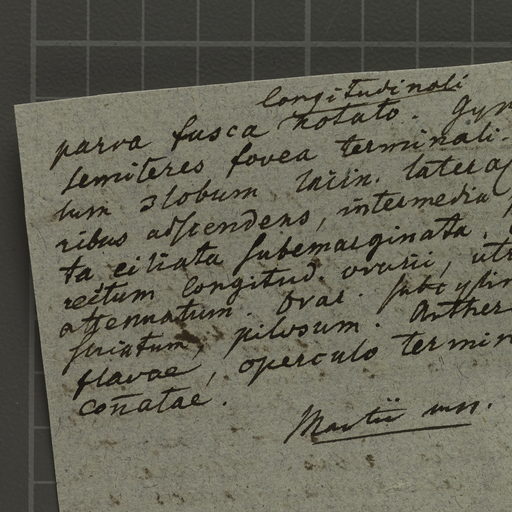 longitudinali
parva fusca notato. Gyn
semiteres fovea terminali.
lum 3lobum lacin. latera
ribus adscendens, intermedia
ta ciliata subemarginata.
rectum longitud. ovarii, utr
attenuatum. Ovar. subcylin
striatum, pilosum. Anther
flavae, operculo termin
coñatae.
Martii mss.